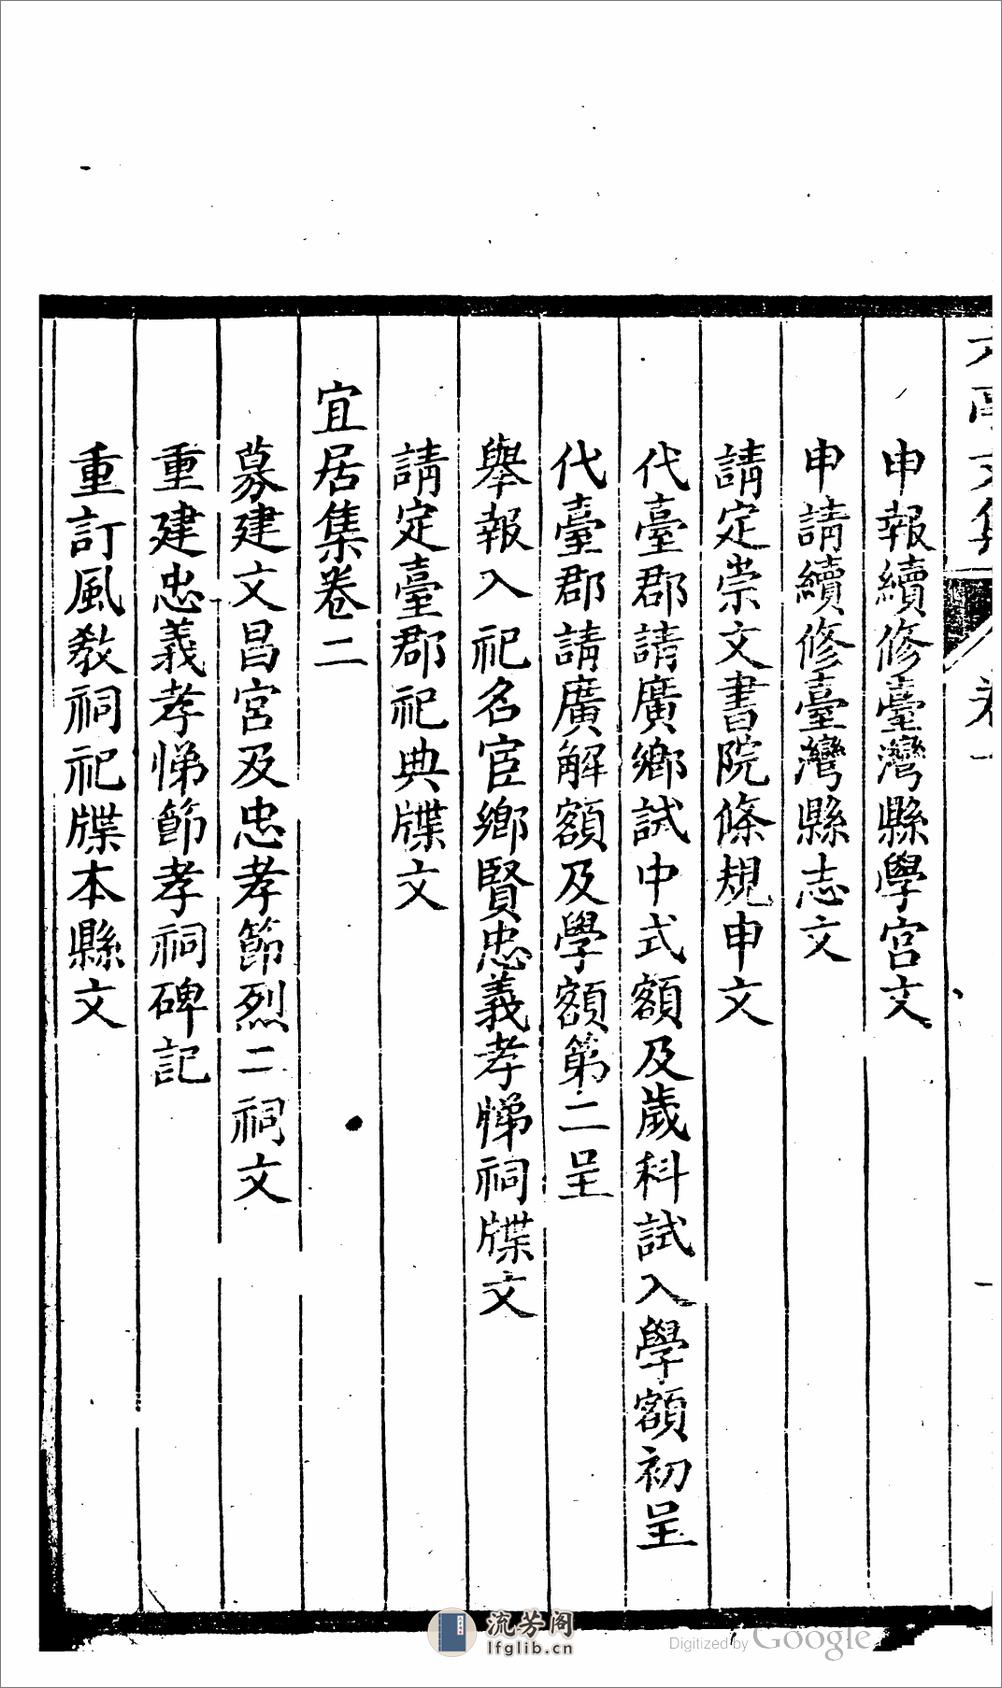 申報續修臺灣縣學宮文
申請續修臺灣縣志文
請定崇文書院條規申文
代臺郡請廣鄉試中式額及歲科試入學額初呈
代臺郡請廣解額及學額第二呈
舉報入祀名宦鄉賢忠義孝悌祠牒文
請定臺郡祀典牒文
宜居集卷二
募建文昌宮及忠孝節烈二祠文
重建忠義孝悌節孝祠碑記
重訂風教祠祀牒本縣文
流芳阁
lfglib.cn
Digitized by Google